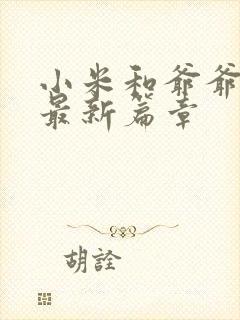 小米和爷爷
最新篇章
胡詮